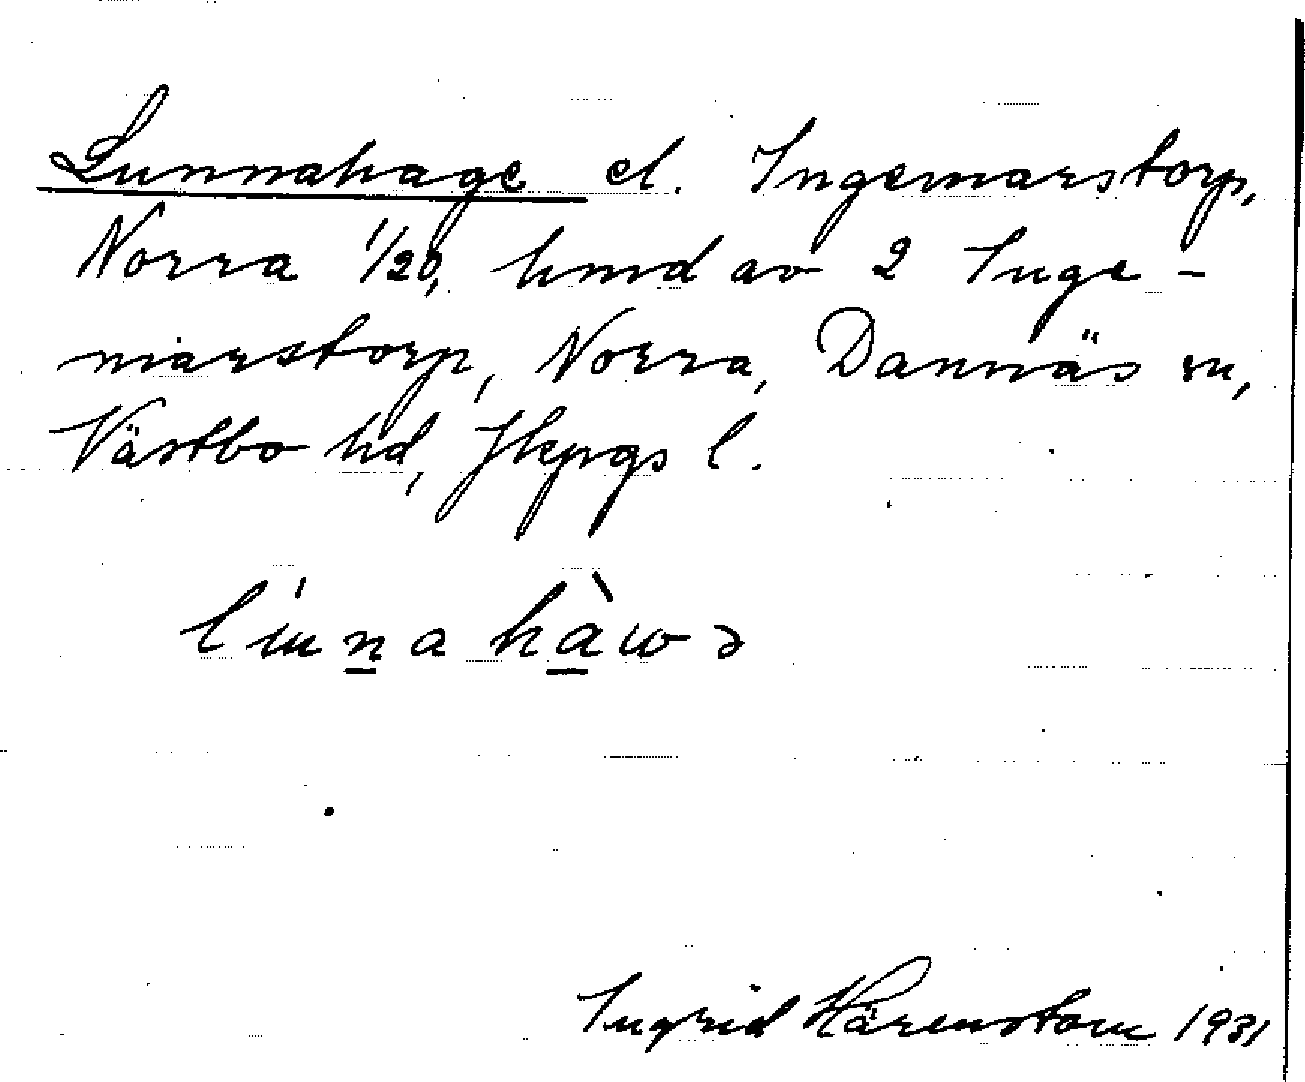 Lunnahage el. Ingemarstorp,
Norra 1/20, hmd av 2 Inge-
marstorp, Norra, Dannäs sn,
Västbo hd, Jkpgs l.
Ingrid Härenstam 1931